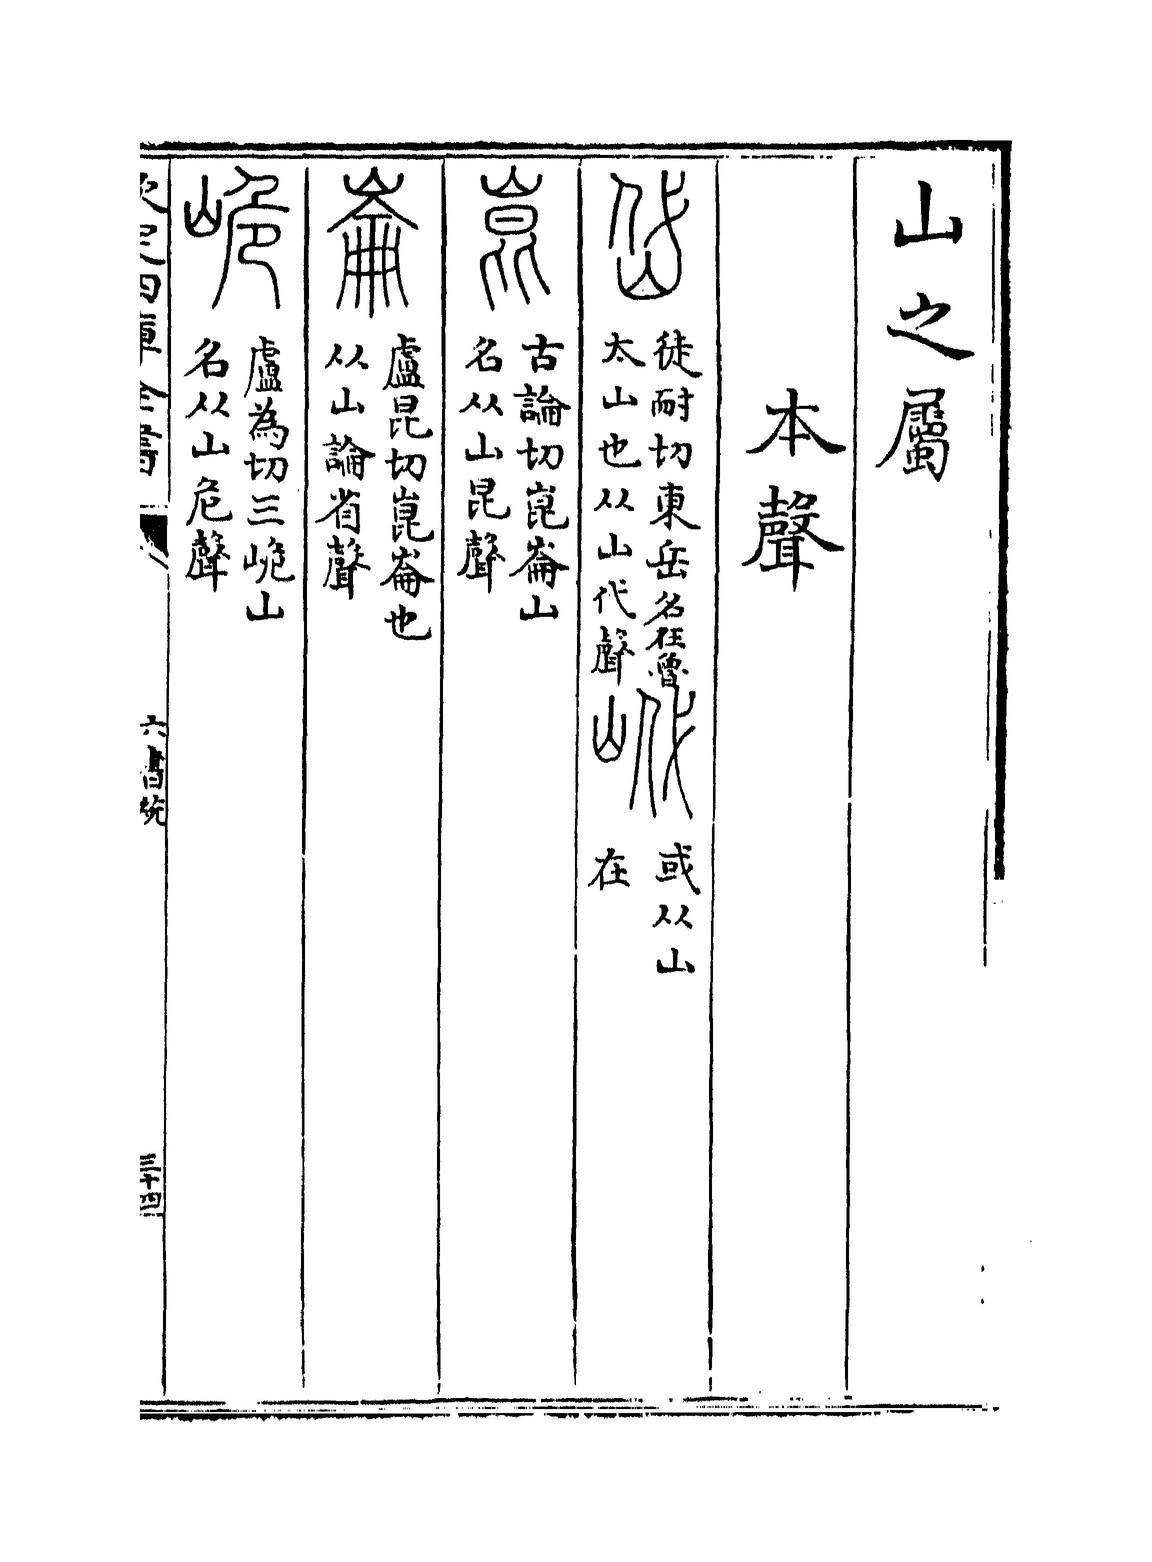 山之屬
本聲
岱
徒耐切東岳名在魯
太山也从山代聲
㟋
或从山
在
崑
古論切崑崙山
名从山昆聲
崙
盧昆切崑崙也
从山論省聲
峗
盧為切三峗山
名从山危聲
欽定四庫全書
六書統
三十四